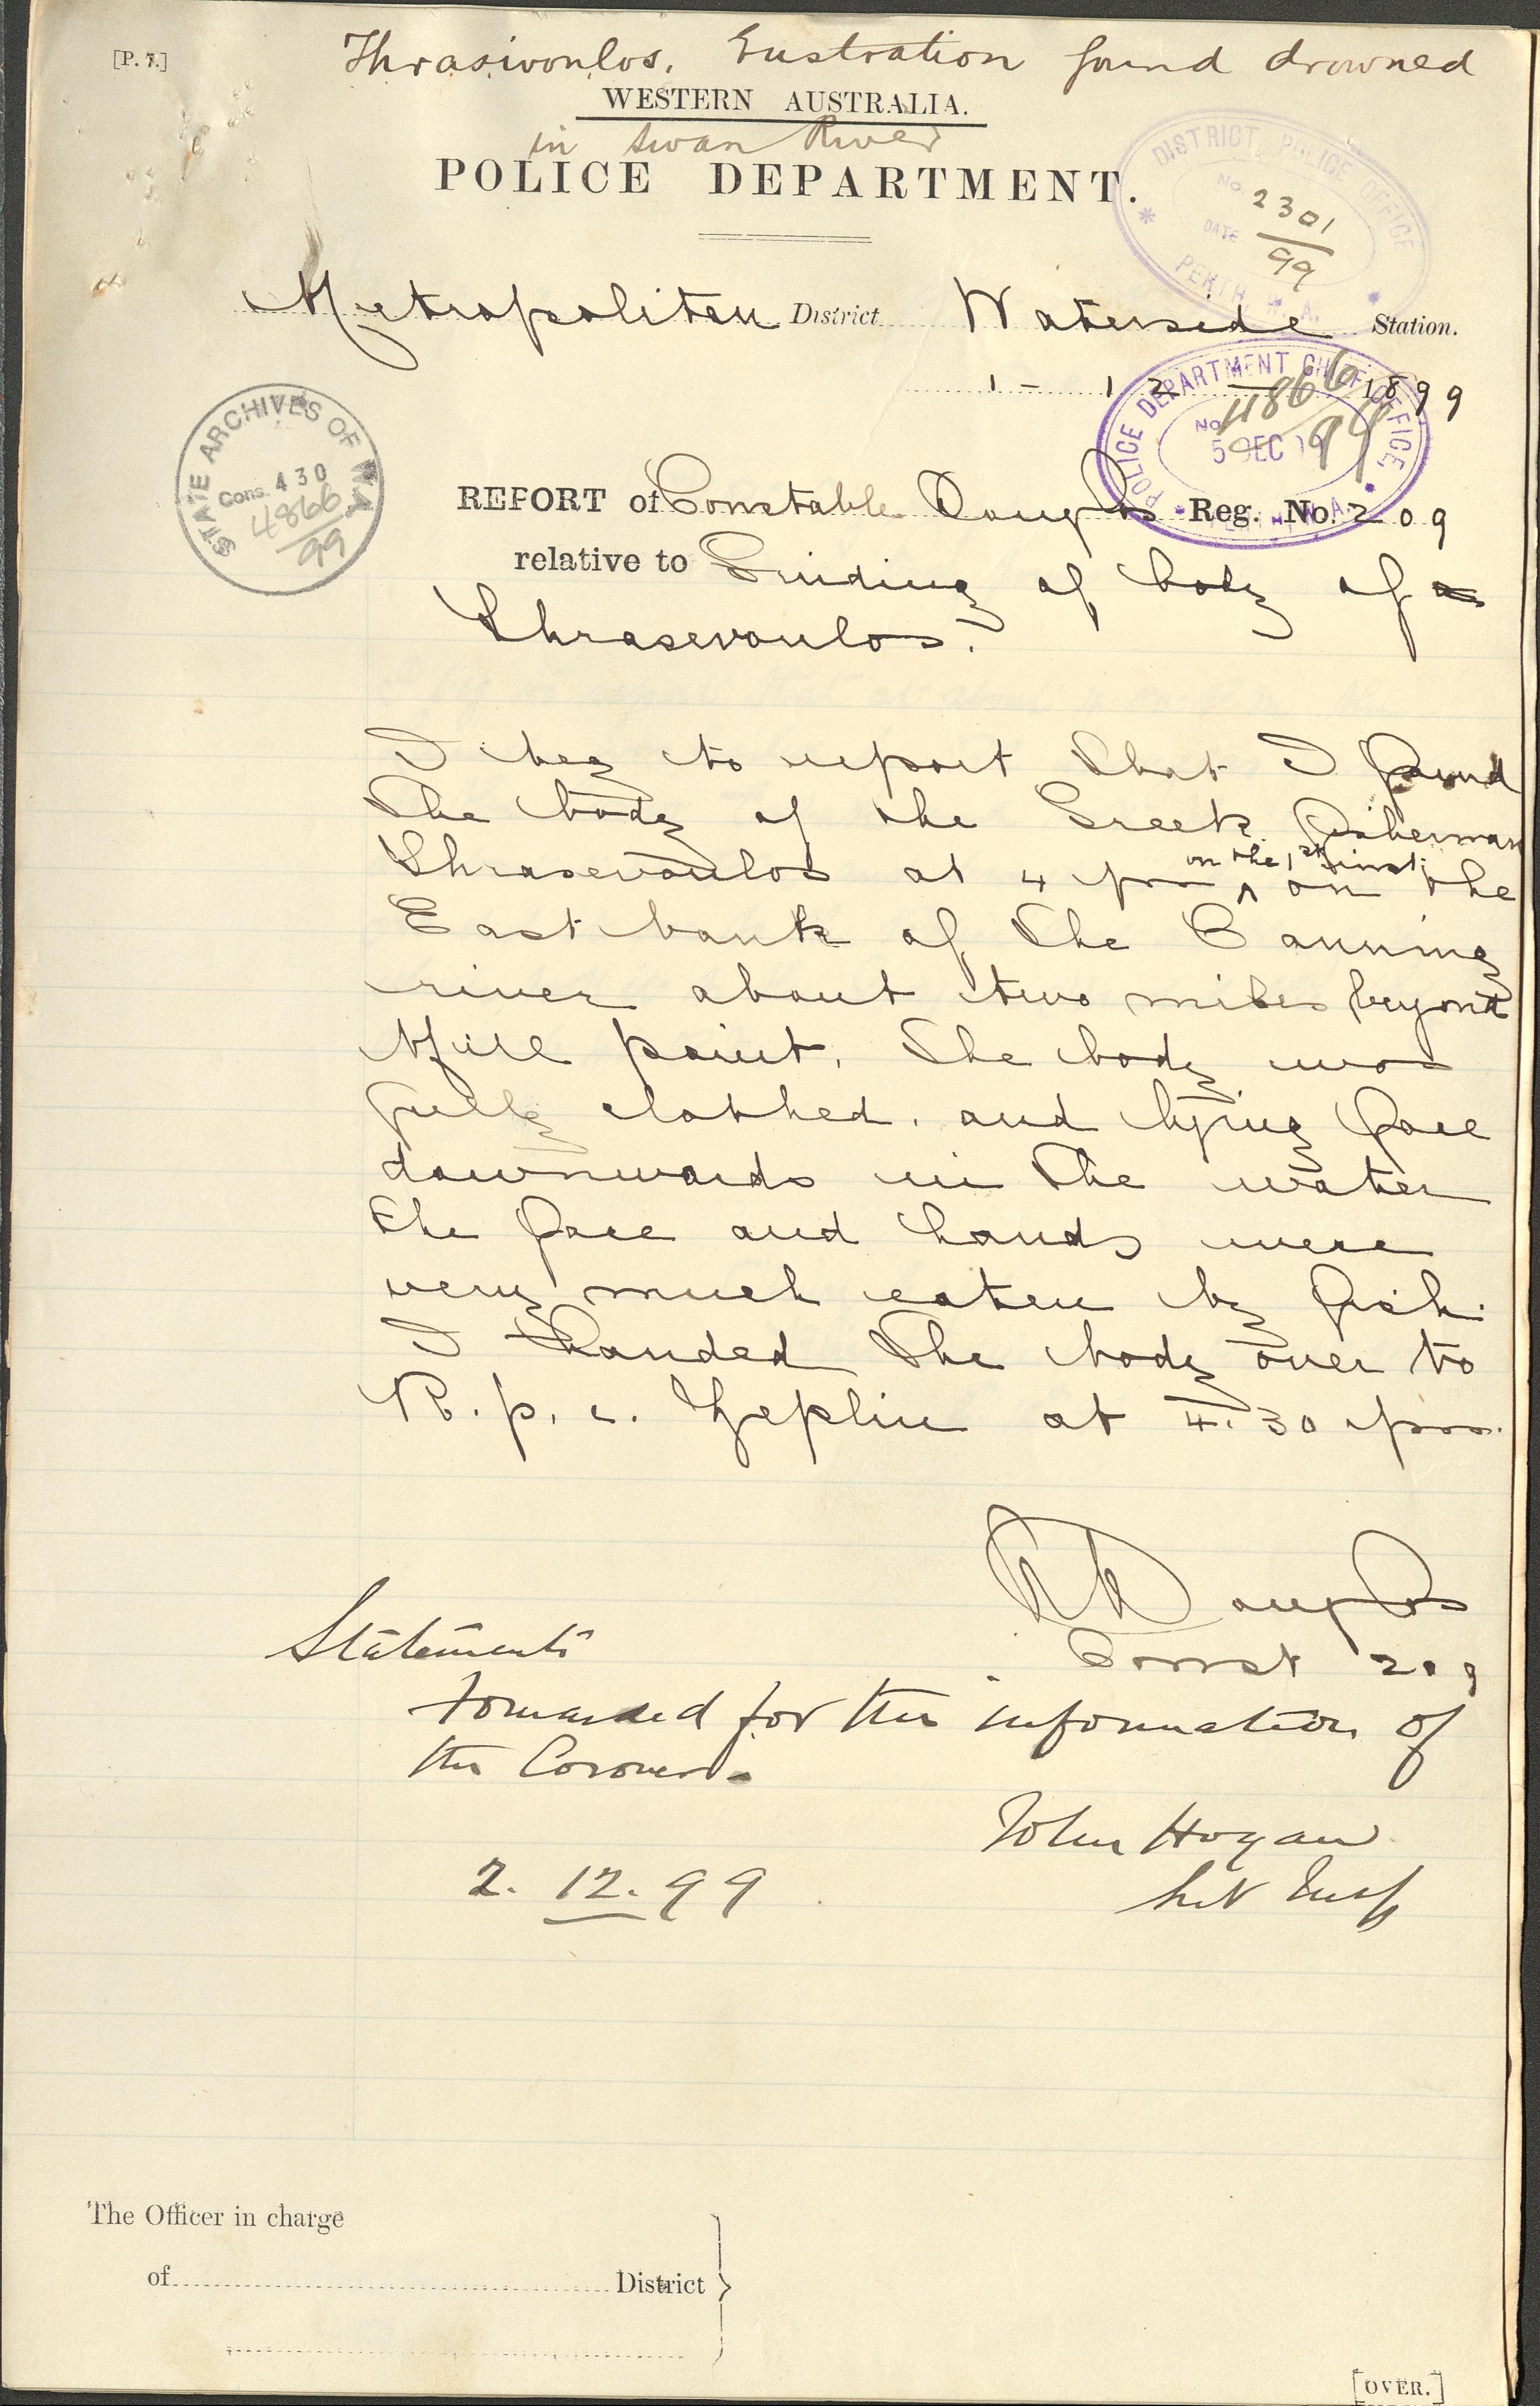 [P. 7.]
Thrasivoulos. Eustration found drowned
WESTERN AUSTRALIA.
in Swan River
POLICE DEPARTMENT.
DISTRICT POLICE OFFICE
No 2301
DATE 99
PERTH, W. A.
Metropolitan District Waterside Station.
1 - 12 - 1899
POLICE DEPARTMENT CHIEF OFFICE,
No. 4866
5 DEC 99
STATE ARCHIVES OF W.A.
Cons. 430
4866
99
REPORT of Constable Douglas Reg. No. 209
relative to Finding of body of
Thrasevoulos.
I beg to report that I found
the body of the Greek fisherman
on the 1st inst.
Thrasevoulos at 4 pm ^ on the
East bank of the Canning
river about two miles beyond
Mill point. The body was
fully clothed. and lying face
downwards in the water
the face and hands were
very much eaten by fish.
I handed the body over to
R. p. c. Zeplin at 4.30 pm.
Douglas
Const 209
Statements
forwarded for the information of
the Coroner.
John Hogan
2. 12. 99
Sub Insp
The Officer in charge
of District
[OVER.]